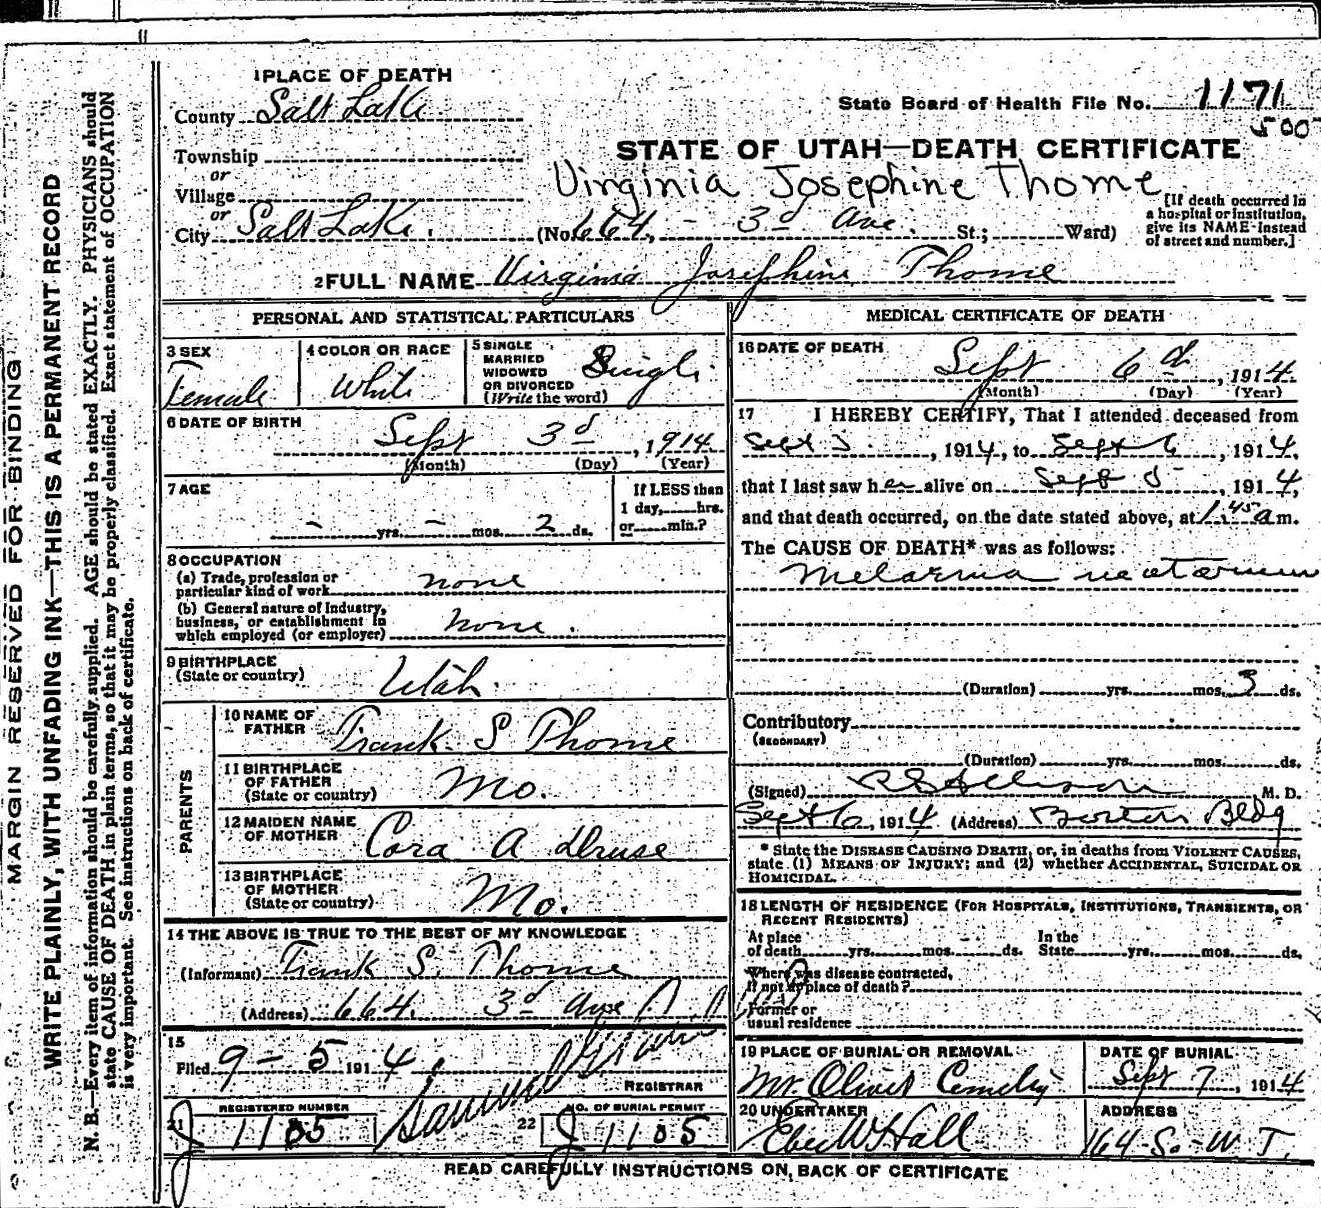 MARGIN RESERVED FOR BINDING
WRITE PLAINLY, WITH UNFADING INK—THIS IS A PERMANENT RECORD
N. B.—Every item of information should be carefully supplied. AGE should be stated EXACTLY. PHYSICIANS should
state CAUSE OF DEATH in plain terms, so that it may be properly classified. Exact statement of OCCUPATION
is very important. See instructions on back of certificate.
1 PLACE OF DEATH
County Salt Lake
Township
or
Village
or
City Salt Lake.
State Board of Health File No. 1171
500
STATE OF UTAH—DEATH CERTIFICATE
Virginia Josephine Thome
(No. 664, - 3d Ave. St.; Ward)
[If death occurred in
a hospital or institution,
give its NAME instead
of street and number.]
2 FULL NAME Virginia Josephine Thome
PERSONAL AND STATISTICAL PARTICULARS
3 SEX
Female
4 COLOR OR RACE
White
5 SINGLE
MARRIED
WIDOWED
OR DIVORCED
(Write the word)
Single
6 DATE OF BIRTH
Sept 3d, 1914
(Month) (Day) (Year)
7 AGE
- yrs. - mos. 2 ds.
If LESS than
1 day, hrs.
or min.?
8 OCCUPATION
(a) Trade, profession or
particular kind of work none
(b) General nature of Industry,
business, or establishment in
which employed (or employer) none.
9 BIRTHPLACE
(State or country) Utah.
PARENTS
10 NAME OF
FATHER Frank S Thome
11 BIRTHPLACE
OF FATHER
(State or country) Mo.
12 MAIDEN NAME
OF MOTHER Cora A Druse
13 BIRTHPLACE
OF MOTHER
(State or country) Mo.
14 THE ABOVE IS TRUE TO THE BEST OF MY KNOWLEDGE
(Informant) Frank S. Thome
(Address) 664. 3d Ave
15
Filed 9-5 1914,
REGISTRAR
21 REGISTERED NUMBER
J 1105
22 NO. OF BURIAL PERMIT
J 1105
MEDICAL CERTIFICATE OF DEATH
16 DATE OF DEATH
Sept 6d, 1914.
(Month) (Day) (Year)
17 I HEREBY CERTIFY, That I attended deceased from
Sept 3, 1914, to Sept 6, 1914,
that I last saw her alive on Sept 5, 1914,
and that death occurred, on the date stated above, at 1.45 a m.
The CAUSE OF DEATH* was as follows:
(Duration) yrs. mos. 3 ds.
Contributory
(SECONDARY)
(Duration) yrs. mos. ds.
(Signed) M. D.
Sept 6, 1914 (Address) Boston Bldg
* State the DISEASE CAUSING DEATH, or, in deaths from VIOLENT CAUSES,
state (1) MEANS OF INJURY; and (2) whether ACCIDENTAL, SUICIDAL OR
HOMICIDAL.
18 LENGTH OF RESIDENCE (FOR HOSPITALS, INSTITUTIONS, TRANSIENTS, OR
RECENT RESIDENTS)
At place
of death yrs. mos. ds. In the
State yrs. mos. ds.
Where was disease contracted,
if not at place of death?
Former or
usual residence
19 PLACE OF BURIAL OR REMOVAL
Mt. Olivet Cemetery
DATE OF BURIAL
Sept 7, 1914
20 UNDERTAKER
Eber W Hall
ADDRESS
164 So. W. T.
READ CAREFULLY INSTRUCTIONS ON BACK OF CERTIFICATE